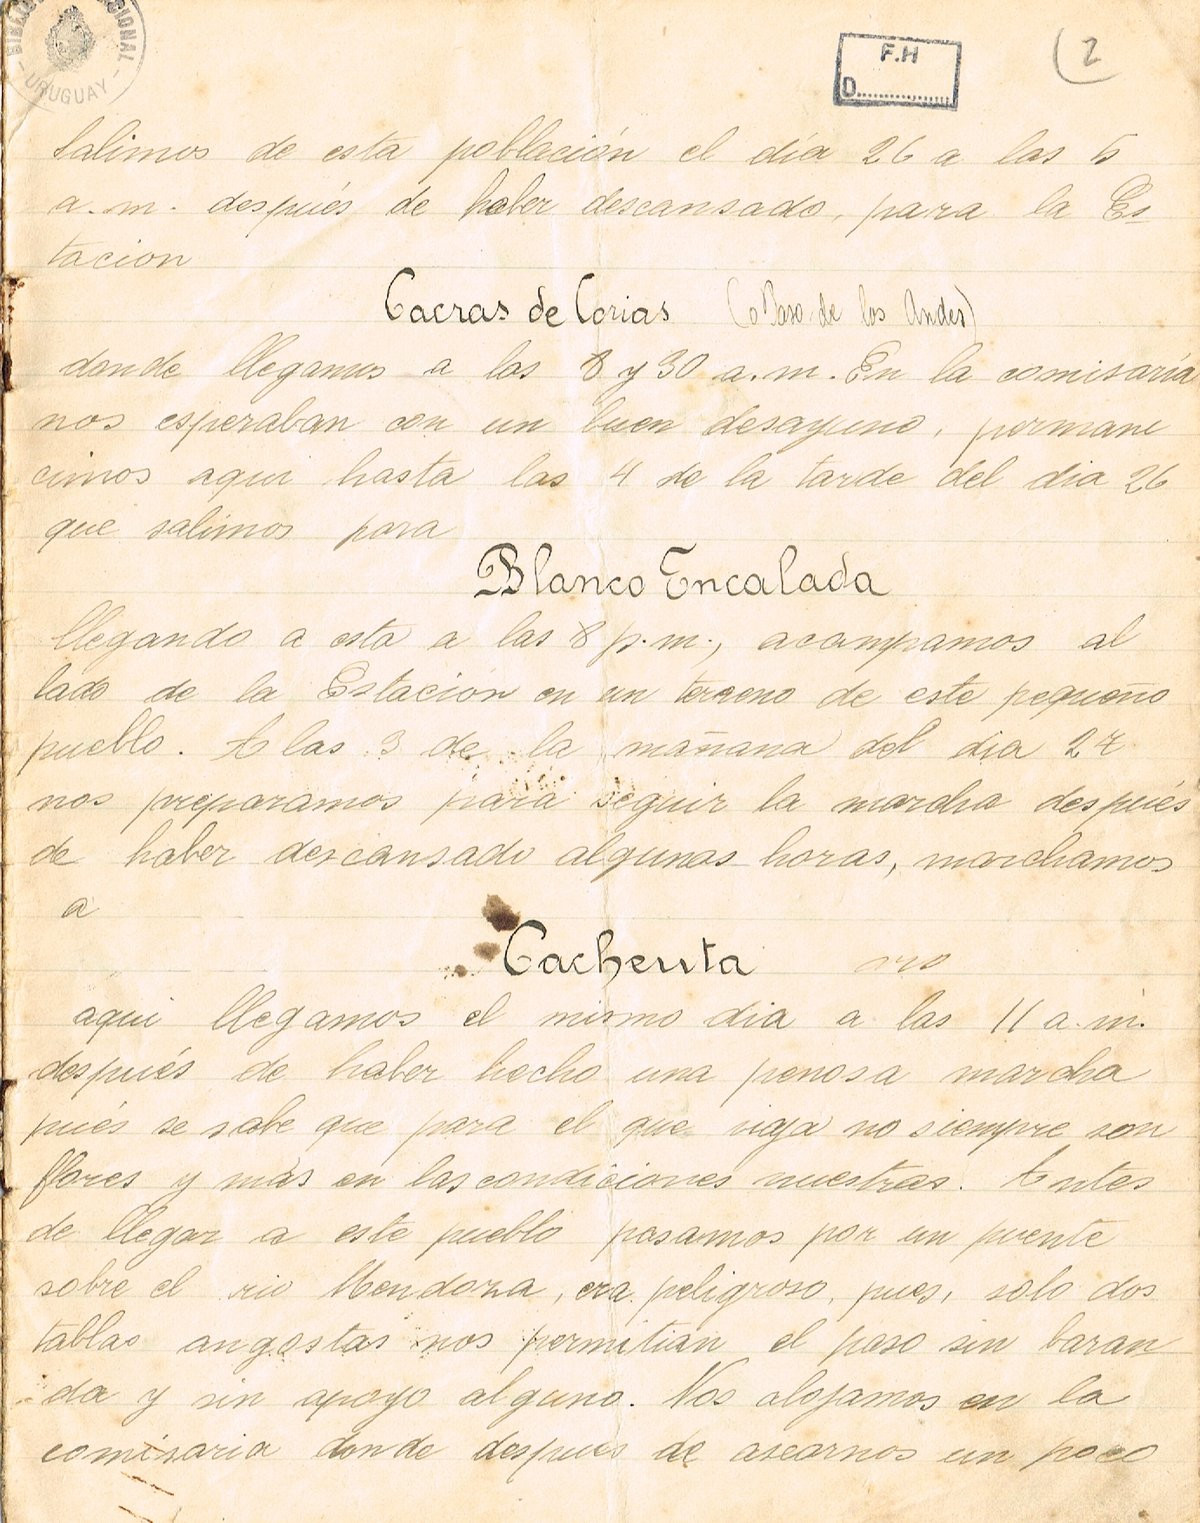 BIBLIOTECA NACIONAL
URUGUAY
F.H
D..............
2
Salimos de esta población el día 26 a las 5
a.m. después de haber descansado, para la Es
tacion
Cacras de Corias (o Paso de los Andes)
donde llegamos a las 8 y 30 a.m. En la comisaría
nos esperaban con un buen desayuno, permane
cimos aqui hasta las 4 de la tarde del dia 26
que salimos para
Blanco Encalada
llegando a esta a las 8 p.m., acampamos al
lado de la Estación en un terreno de este pequeño
pueblo. A las 3 de la mañana del dia 27
nos preparamos para seguir la marcha después
de haber descansado algunas horas, marchamos
a
Cacheuta
aqui llegamos el mismo dia a las 11 a.m.
después de haber hecho una penosa marcha
pués se sabe que para el que viaja no siempre son
flores y más en las condiciones nuestras. Antes
de llegar a este pueblo pasamos por un puente
sobre el rio Mendoza, era peligroso, pues, solo dos
tablas angostas nos permitian el paso sin baran
da y sin apoyo alguno. Nos alojamos en la
comisaria donde despues de asearnos un poco